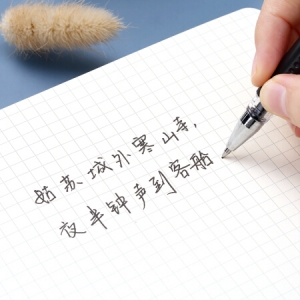 姑苏城外寒山寺，
夜半钟声到客船